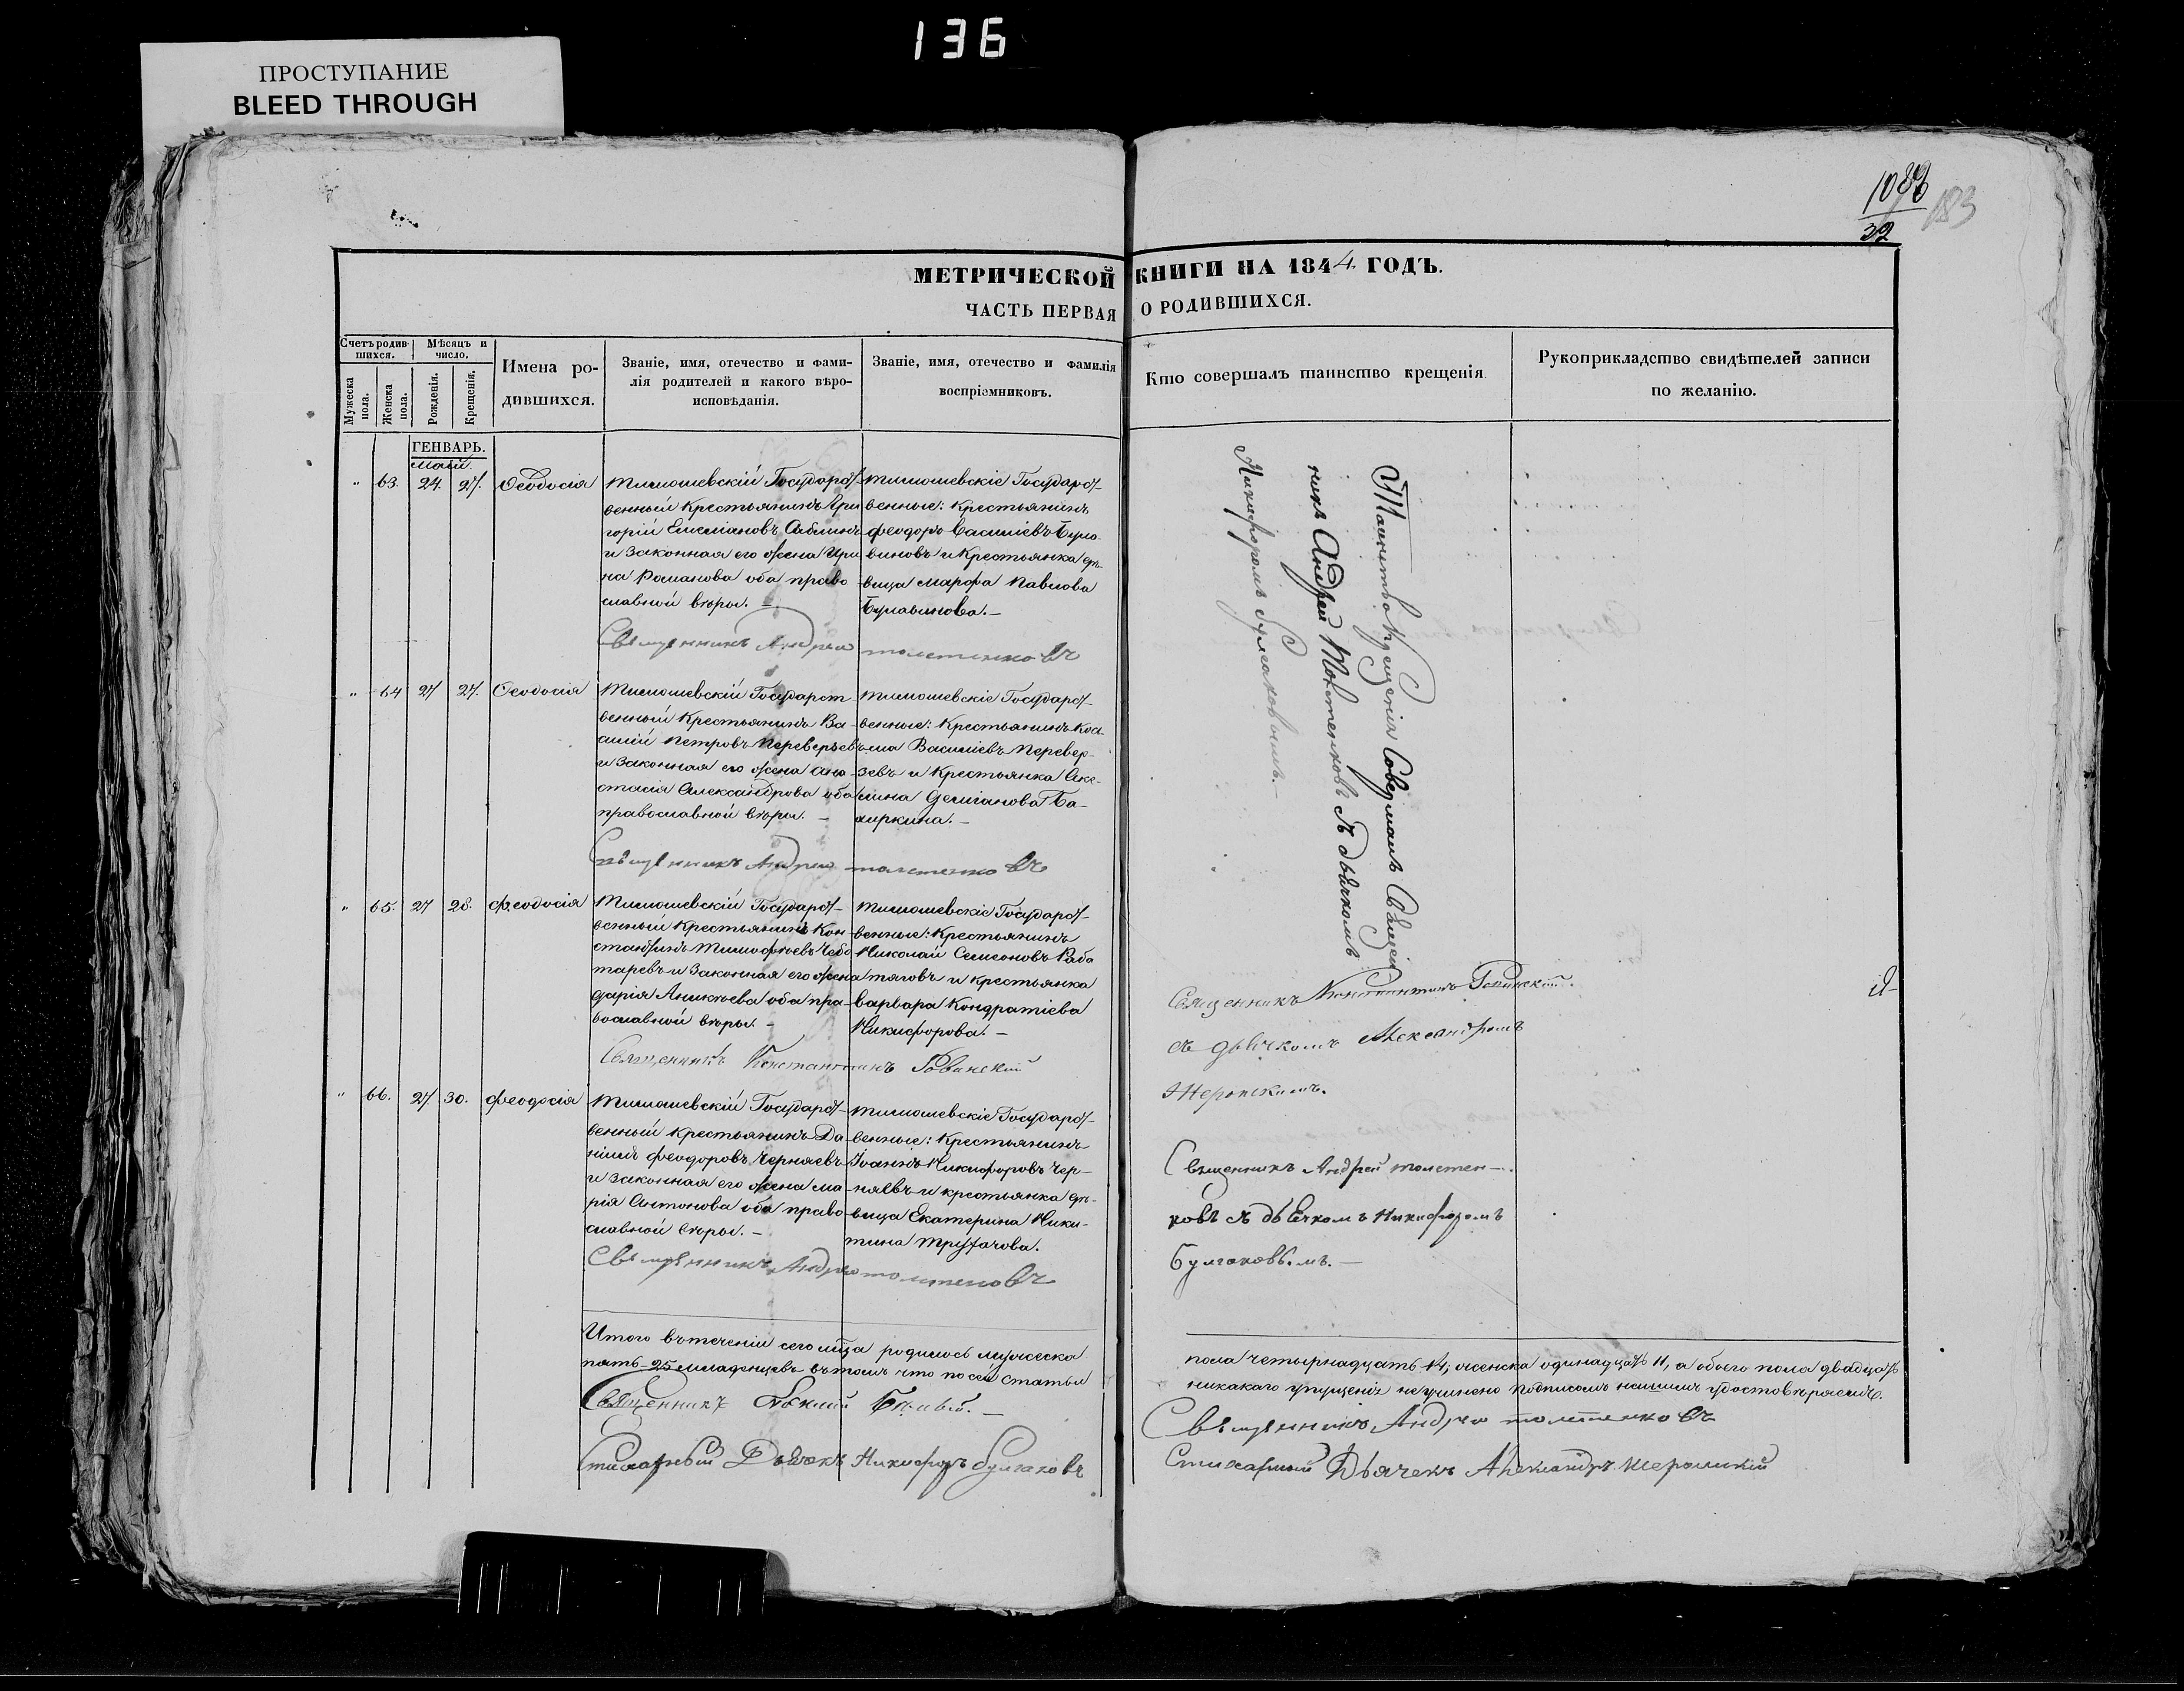 136
ПРОСТУПАНИЕ
BLEED THROUGH
183
32
МЕТРИЧЕСКОЙ КНИГИ НА 1844 ГОДЪ.
ЧАСТЬ ПЕРВАЯ О РОДИВШИХСЯ.
Счетъ родившихся.
Мужеска пола.
Женска пола.
Мѣсяцъ и число.
Рожденія.
Крещенія.
Имена родившихся.
Званіе, имя, отечество и фами-
лія родителей и какого вѣро-
исповѣданія.
Званіе, имя, отечество и фамилія
воспріемниковъ.
Кто совершалъ таинство крещенія.
Рукоприкладство свидѣтелей записи
по желанію.
ГЕНВАРЬ.
Маій.
" 63. 24. 27. Ѳеодосія
Тимошевскій Государст-
венный крестьянинъ Гри
горій Емеліановъ
и законная его жена Ири
на Романова оба право
славной вѣры. –
Тимошевскіе Государст-
венные: крестьянинъ
Феодоръ Василіевъ Була
виновъ и крестьянка дѣ-
вица Марфа Павлова
Булавинова. –
Священникъ Андрей Толстенковъ
Таинство Крещенія Совершалъ Священ
никъ Андрей Толстенковъ съ дьячкомъ
Никифоромъ Булгаковымъ. –
" 64 27 27. Ѳеодосія
Тимошевскій Государст
венный крестьянинъ Ва-
силій Петровъ Переверзевъ
и законная его жена Ана-
стасія Александрова оба
православной вѣры. –
Тимошевскіе Государст-
венные: крестьянинъ Коз
ма Василіевъ Перевер-
зевъ и крестьянка Аке-
лина Деміанова
Священникъ Андрей Толстенковъ
" 65. 27 28. Феодосія
Тимошевскій Государст-
венный крестьянинъ Кон
стантинъ Тимофѣевъ Чебо
таревъ и законная его жена
Дарія Аникѣева оба пра-
вославной вѣры. –
Тимошевскіе Государст-
венные: крестьянинъ
Николай Семеновъ Рабо
тяговъ и крестьянка
Варвара Кондратіева
Никифорова. –
Священникъ Константинъ Ровинскій
Священникъ Константинъ Ровинскій.
съ дьячкомъ Александромъ
" 66. 27. 30. Феодосія
Тимошевскій Государст-
венный крестьянинъ Да-
ніилъ Феодоровъ Черняевъ
и законная его жена Ма-
рія Антонова оба право
славной вѣры. –
Тимошевскіе Государст-
венные: крестьянинъ
Іоаннъ Никифоровъ Чер-
няевъ и крестьянка дѣ-
вица Екатерина Ники-
тина Трубачова.
Священникъ Андрей Толстенковъ
Священникъ Андрей Толстен-
ковъ съ дьячкомъ Никифоромъ
Булгаковымъ. –
Итого въ теченіи сего м͠ца родилось мужеска пола четырнадцать 14; женска одинадцать 11, а обоего пола двадцать
пять 25 младенцевъ въ томъ что по сей статьи никакаго упущенія не учинено подписомъ нашимъ удостовѣряемъ.
Священникъ Бѣлый. –
Священникъ Андрей Толстенковъ
Стихарный Дьячокъ Никифоръ Булгаковъ
Стихарный Дьячекъ Александръ